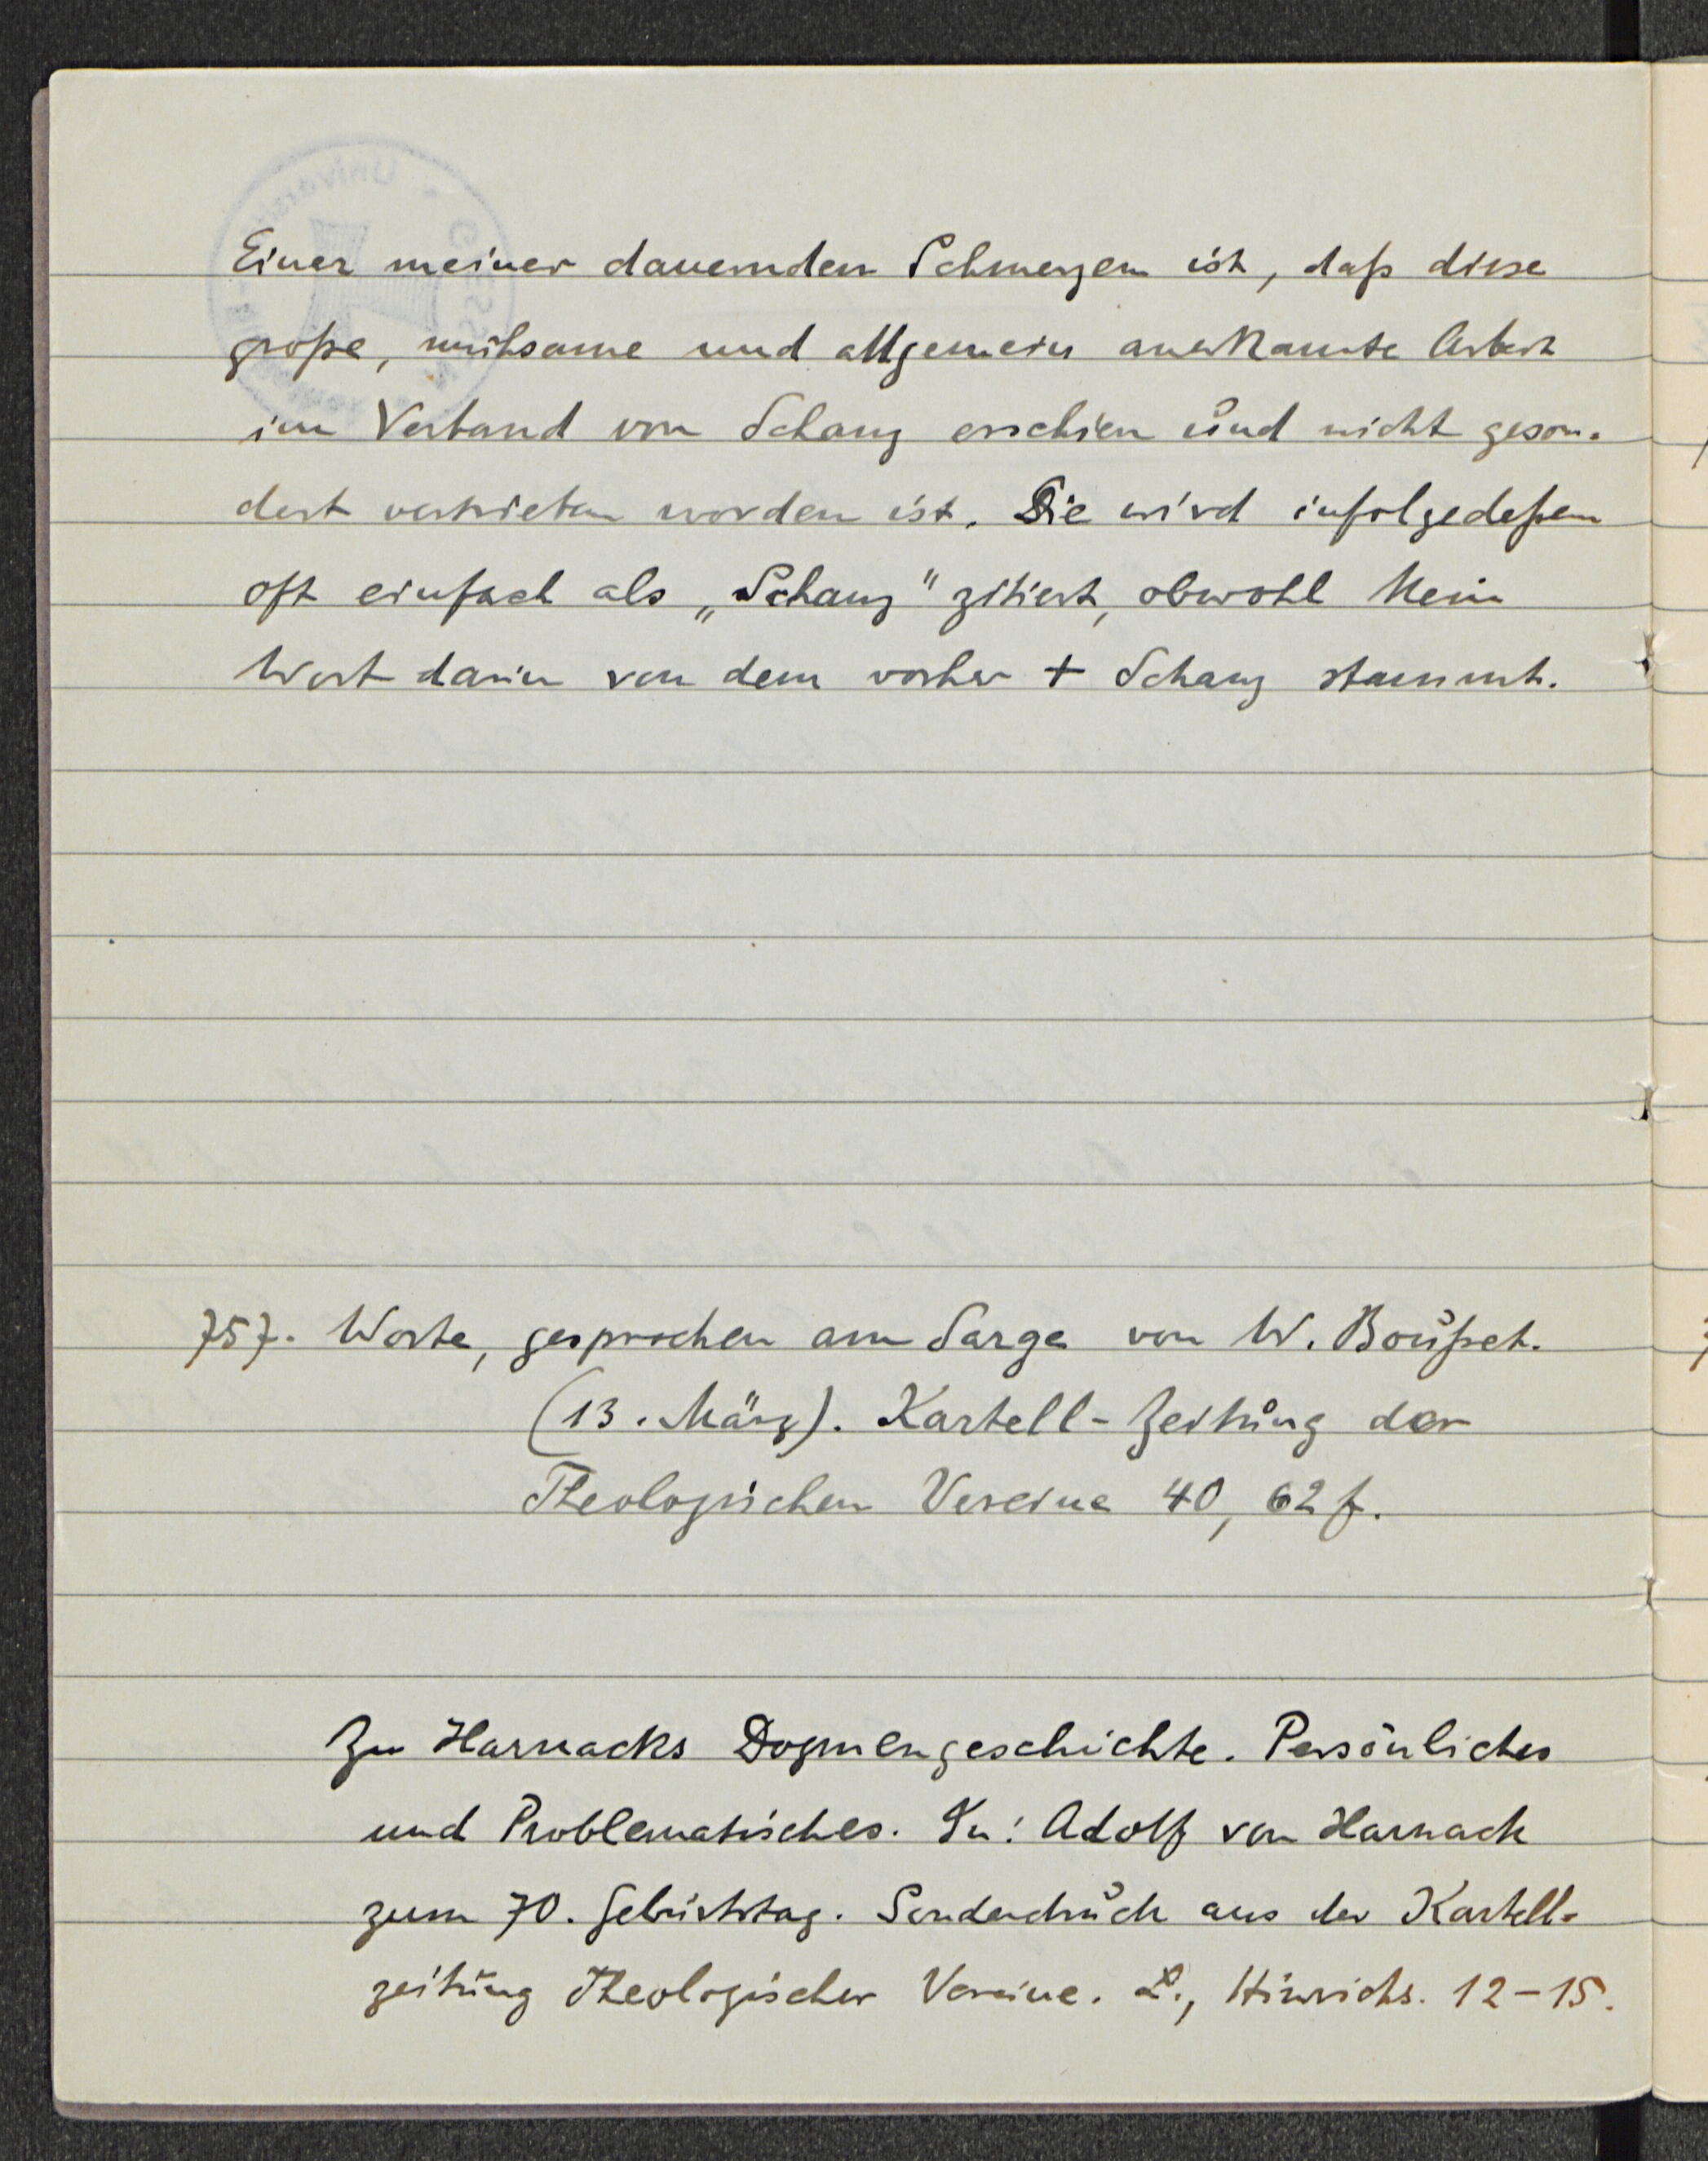 Einer meiner dauernden Schmerzen ist, daß diese
große, mühsame und allgemein anerkannte Arbeit
im Verband von Schanz erschien und nicht geson-
dert vertrieben worden ist. Sie wird infolgedeßen
oft einfach als „Schanz" zitiert, obwohl kein
Wort darin von dem vorher † Schanz stammt.
757. Worte, gesprochen am Sarge von W. Boußet.
(13. März). Kartell-Zeitung der
Theologischen Vereine 40, 62 f.
Zu Harnacks Dogmengeschichte. Persönliches
und Problematisches. In: Adolf von Harnack
zum 70. Geburtstag. Sonderdruck aus der Kartell-
zeitung Theologischer Vereine. L., Hinrichs. 12–15.